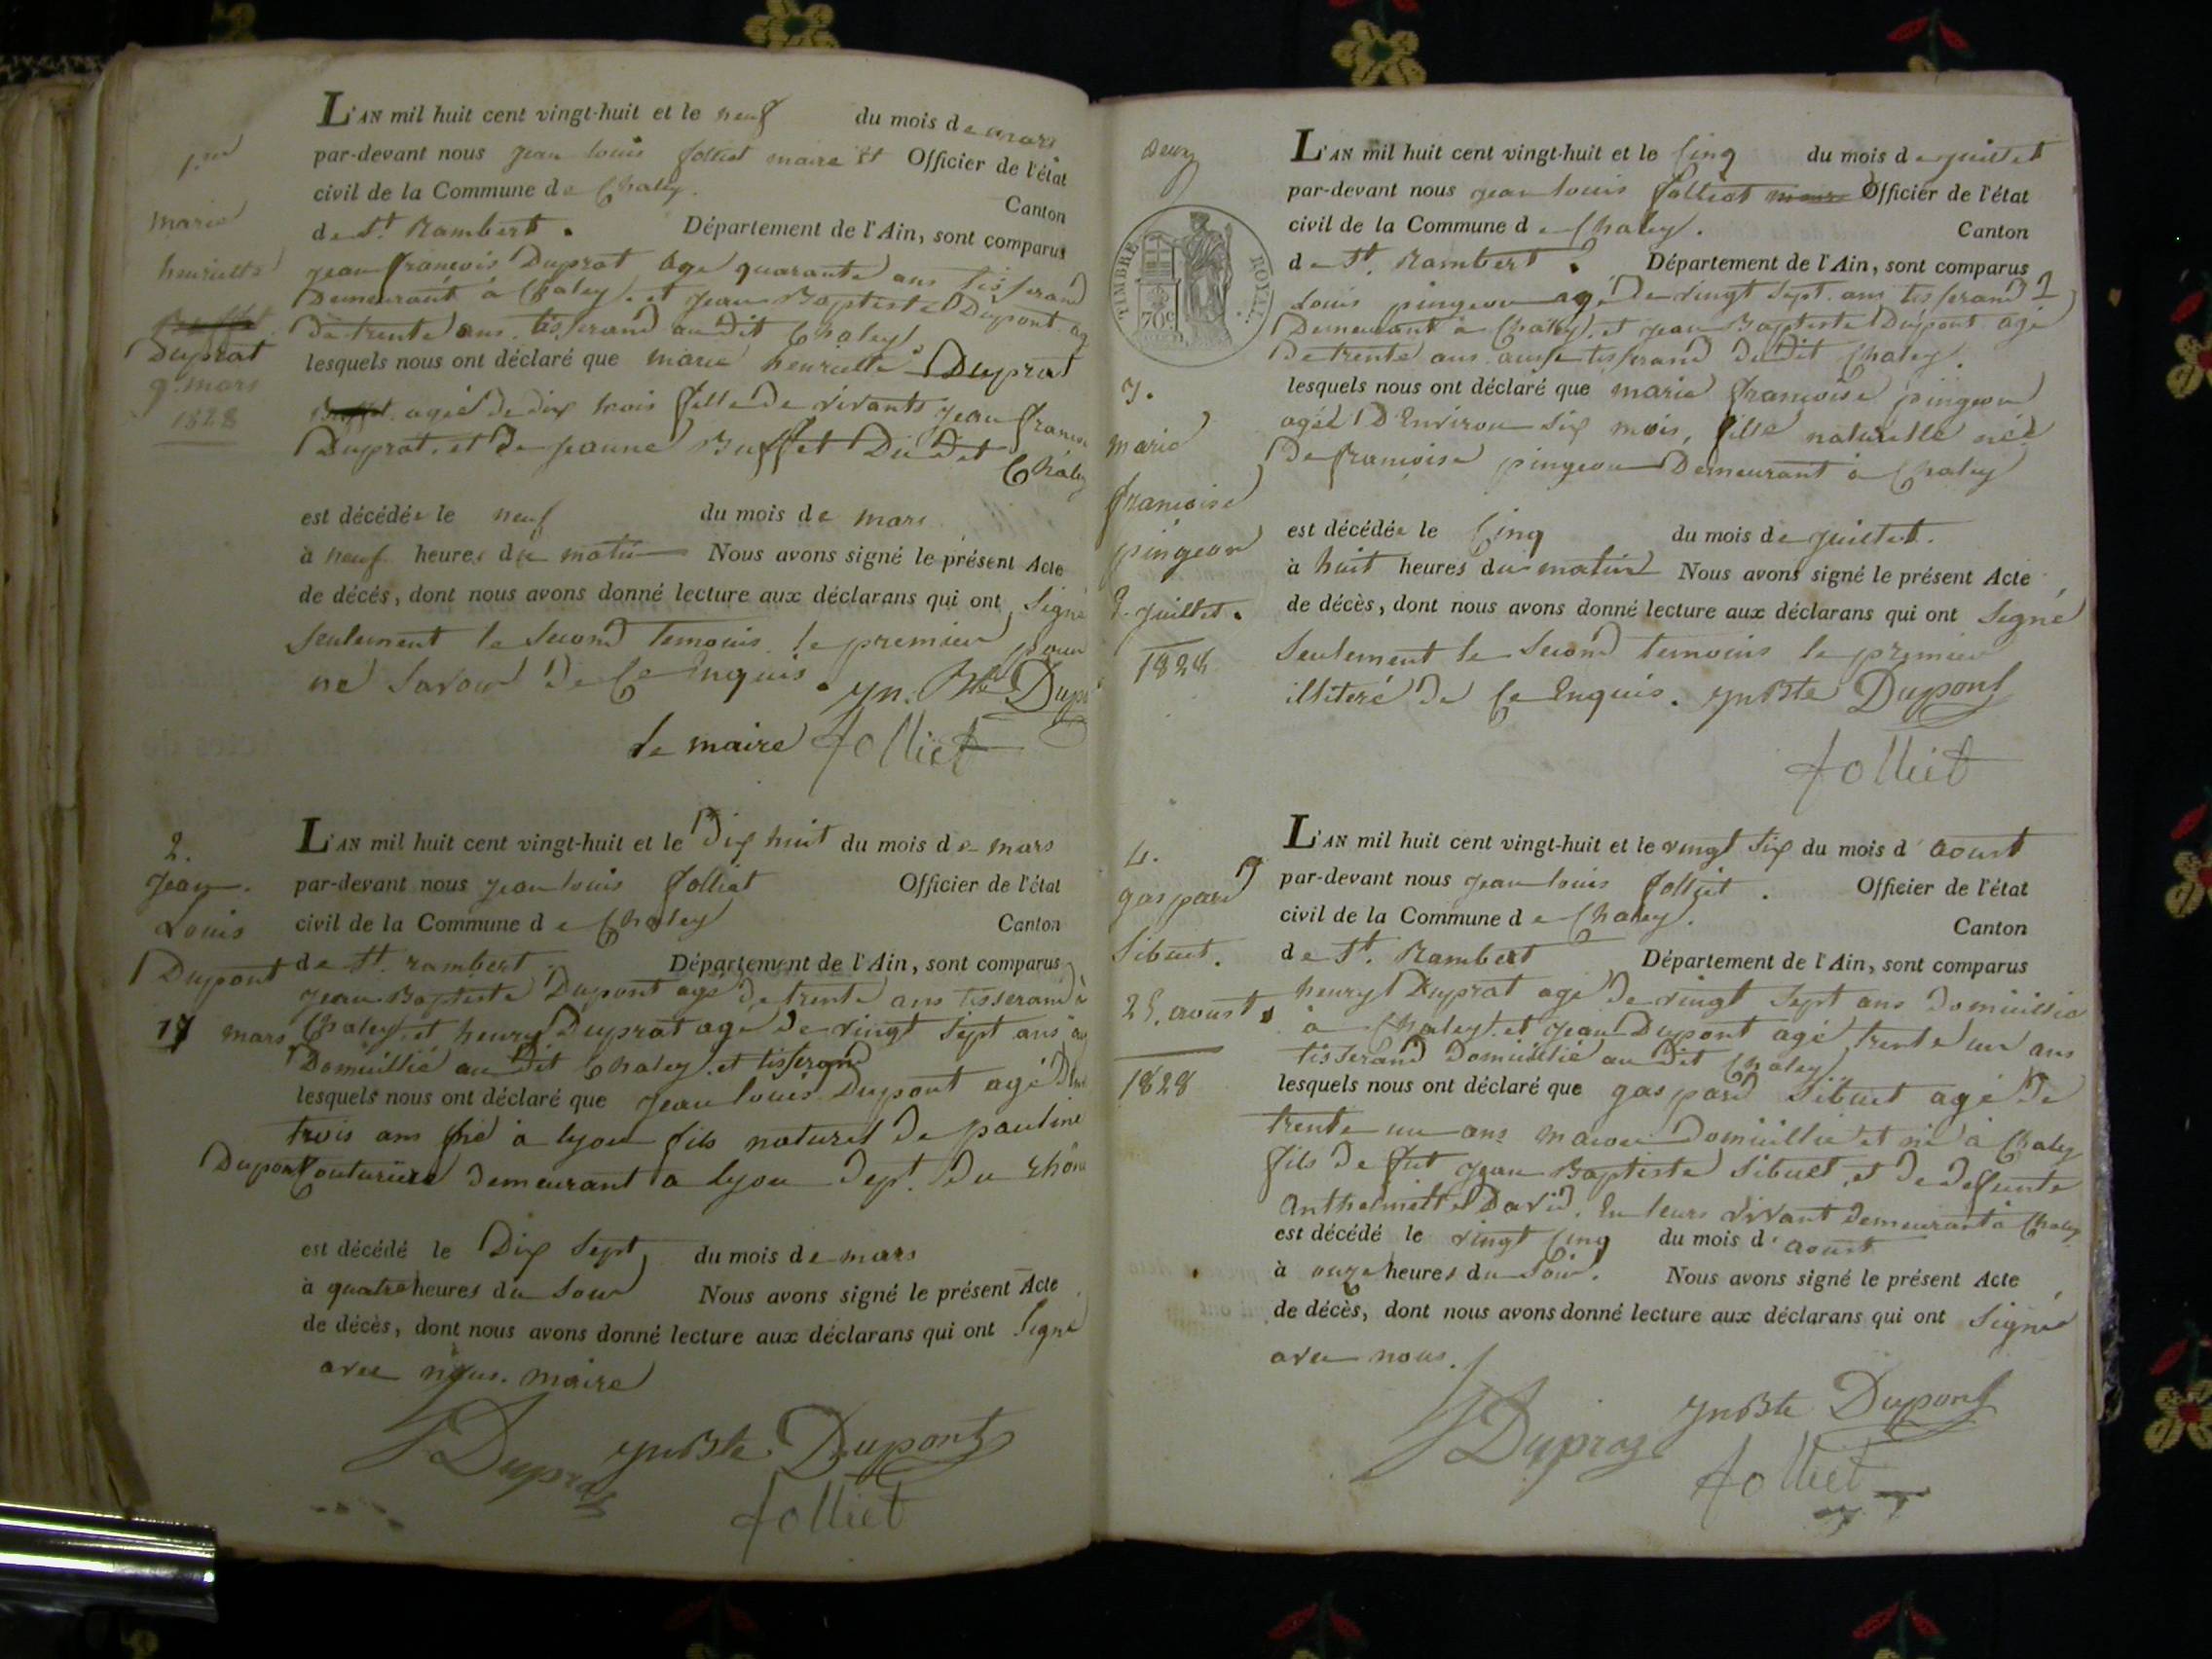 1.er
marie
henriette
Duprat
9. mars
1828
L'AN mil huit cent vingt-huit et le neuf du mois de mars
par-devant nous jean louis folliet maire et Officier de l'état
civil de la Commune de Chaley. Canton
de St. Rambert. Département de l'Ain, sont comparus
jean françois Duprat agé quarante ans tisserand
Demeurant à Chaley. et jean Baptiste Dupont ag
de trente ans. tisserand au dit Chaley.
lesquels nous ont déclaré que marie henriette Duprat
agée de dix trois fille de vivants jean francois
Duprat. et de jeanne Buffet Du dit Chaley
est décédée le neuf du mois de mars
à neuf heures du matin Nous avons signé le présent Acte
de décès, dont nous avons donné lecture aux déclarans qui ont signé
seulement le second temoins. le premier pour
ne savoir de ce enquis. jn. Bte Dupo
le maire folliet
2.
jean.
Louis
Dupont
17 mars
L'AN mil huit cent vingt-huit et le Dix huit du mois de mars
par-devant nous jean louis folliet Officier de l'état
civil de la Commune de Chaley Canton
de St. rambert. Département de l'Ain, sont comparus
jean Baptiste Dupont agé de trente ans tisserand à
Chaley. et henry Duprat agé de vingt sept ans ag
Domicillié au dit Chaley. et tisserand
lesquels nous ont déclaré que jean louis Dupont agé De
trois ans né à lyon fils naturel de pauline
Dupont Couturiere demeurant a lyon dept. du rhône
est décédé le Dix sept du mois de mars
à quatre heures du soir Nous avons signé le présent Acte
de décès, dont nous avons donné lecture aux déclarans qui ont signé
avec nous. maire
Duprat jn Bte. Dupont
folliet
deux
TIMBRE ROYAL.
70c
3.
marie
francoise
pingeon
5. juillet.
1828
L'AN mil huit cent vingt-huit et le cinq du mois de juillet
par-devant nous jean louis folliet maire Officier de l'état
civil de la Commune de Chaley. Canton
de St. Rambert. Département de l'Ain, sont comparus
Louis pingeon agé de vingt sept. ans tisserand
Demeurant à Chaley. et jean Baptiste Dupont agé
de trente ans. aussi tisserand du dit Chaley.
lesquels nous ont déclaré que marie francoise pingeon
agée D'Environ six mois, fille naturelle née
de francoise pingeon Demeurant à Chaley
est décédée le cinq du mois de juillet.
à huit heures du matin Nous avons signé le présent Acte
de décès, dont nous avons donné lecture aux déclarans qui ont signé
seulement le second temoins le premier
illiteré de ce enquis. jn Bte Dupont
folliet
4.
gaspard
Sibuet.
25. aoust.
1828
L'AN mil huit cent vingt-huit et le vingt six du mois d'aoust
par-devant nous jean louis folliet. Officier de l'état
civil de la Commune de Chaley. Canton
de St. Rambert Département de l'Ain, sont comparus
henry Duprat agé de vingt sept ans Domicillié
à Chaley. et jean Dupont agé trente un ans
tisserand Domicillié au dit Chaley
lesquels nous ont déclaré que gaspard Sibuet agé de
trente un ans macon Domicillié et né à Chaley
fils de fut jean Baptiste Sibuet, et de defunte
Anthelmette David. En leurs vivant demeurant à Chaley
est décédé le vingt cinq du mois d'aoust
à onze heures du soir. Nous avons signé le présent Acte
de décès, dont nous avons donné lecture aux déclarans qui ont signé
avec nous.
Duprat jn Bte Dupont
folliet